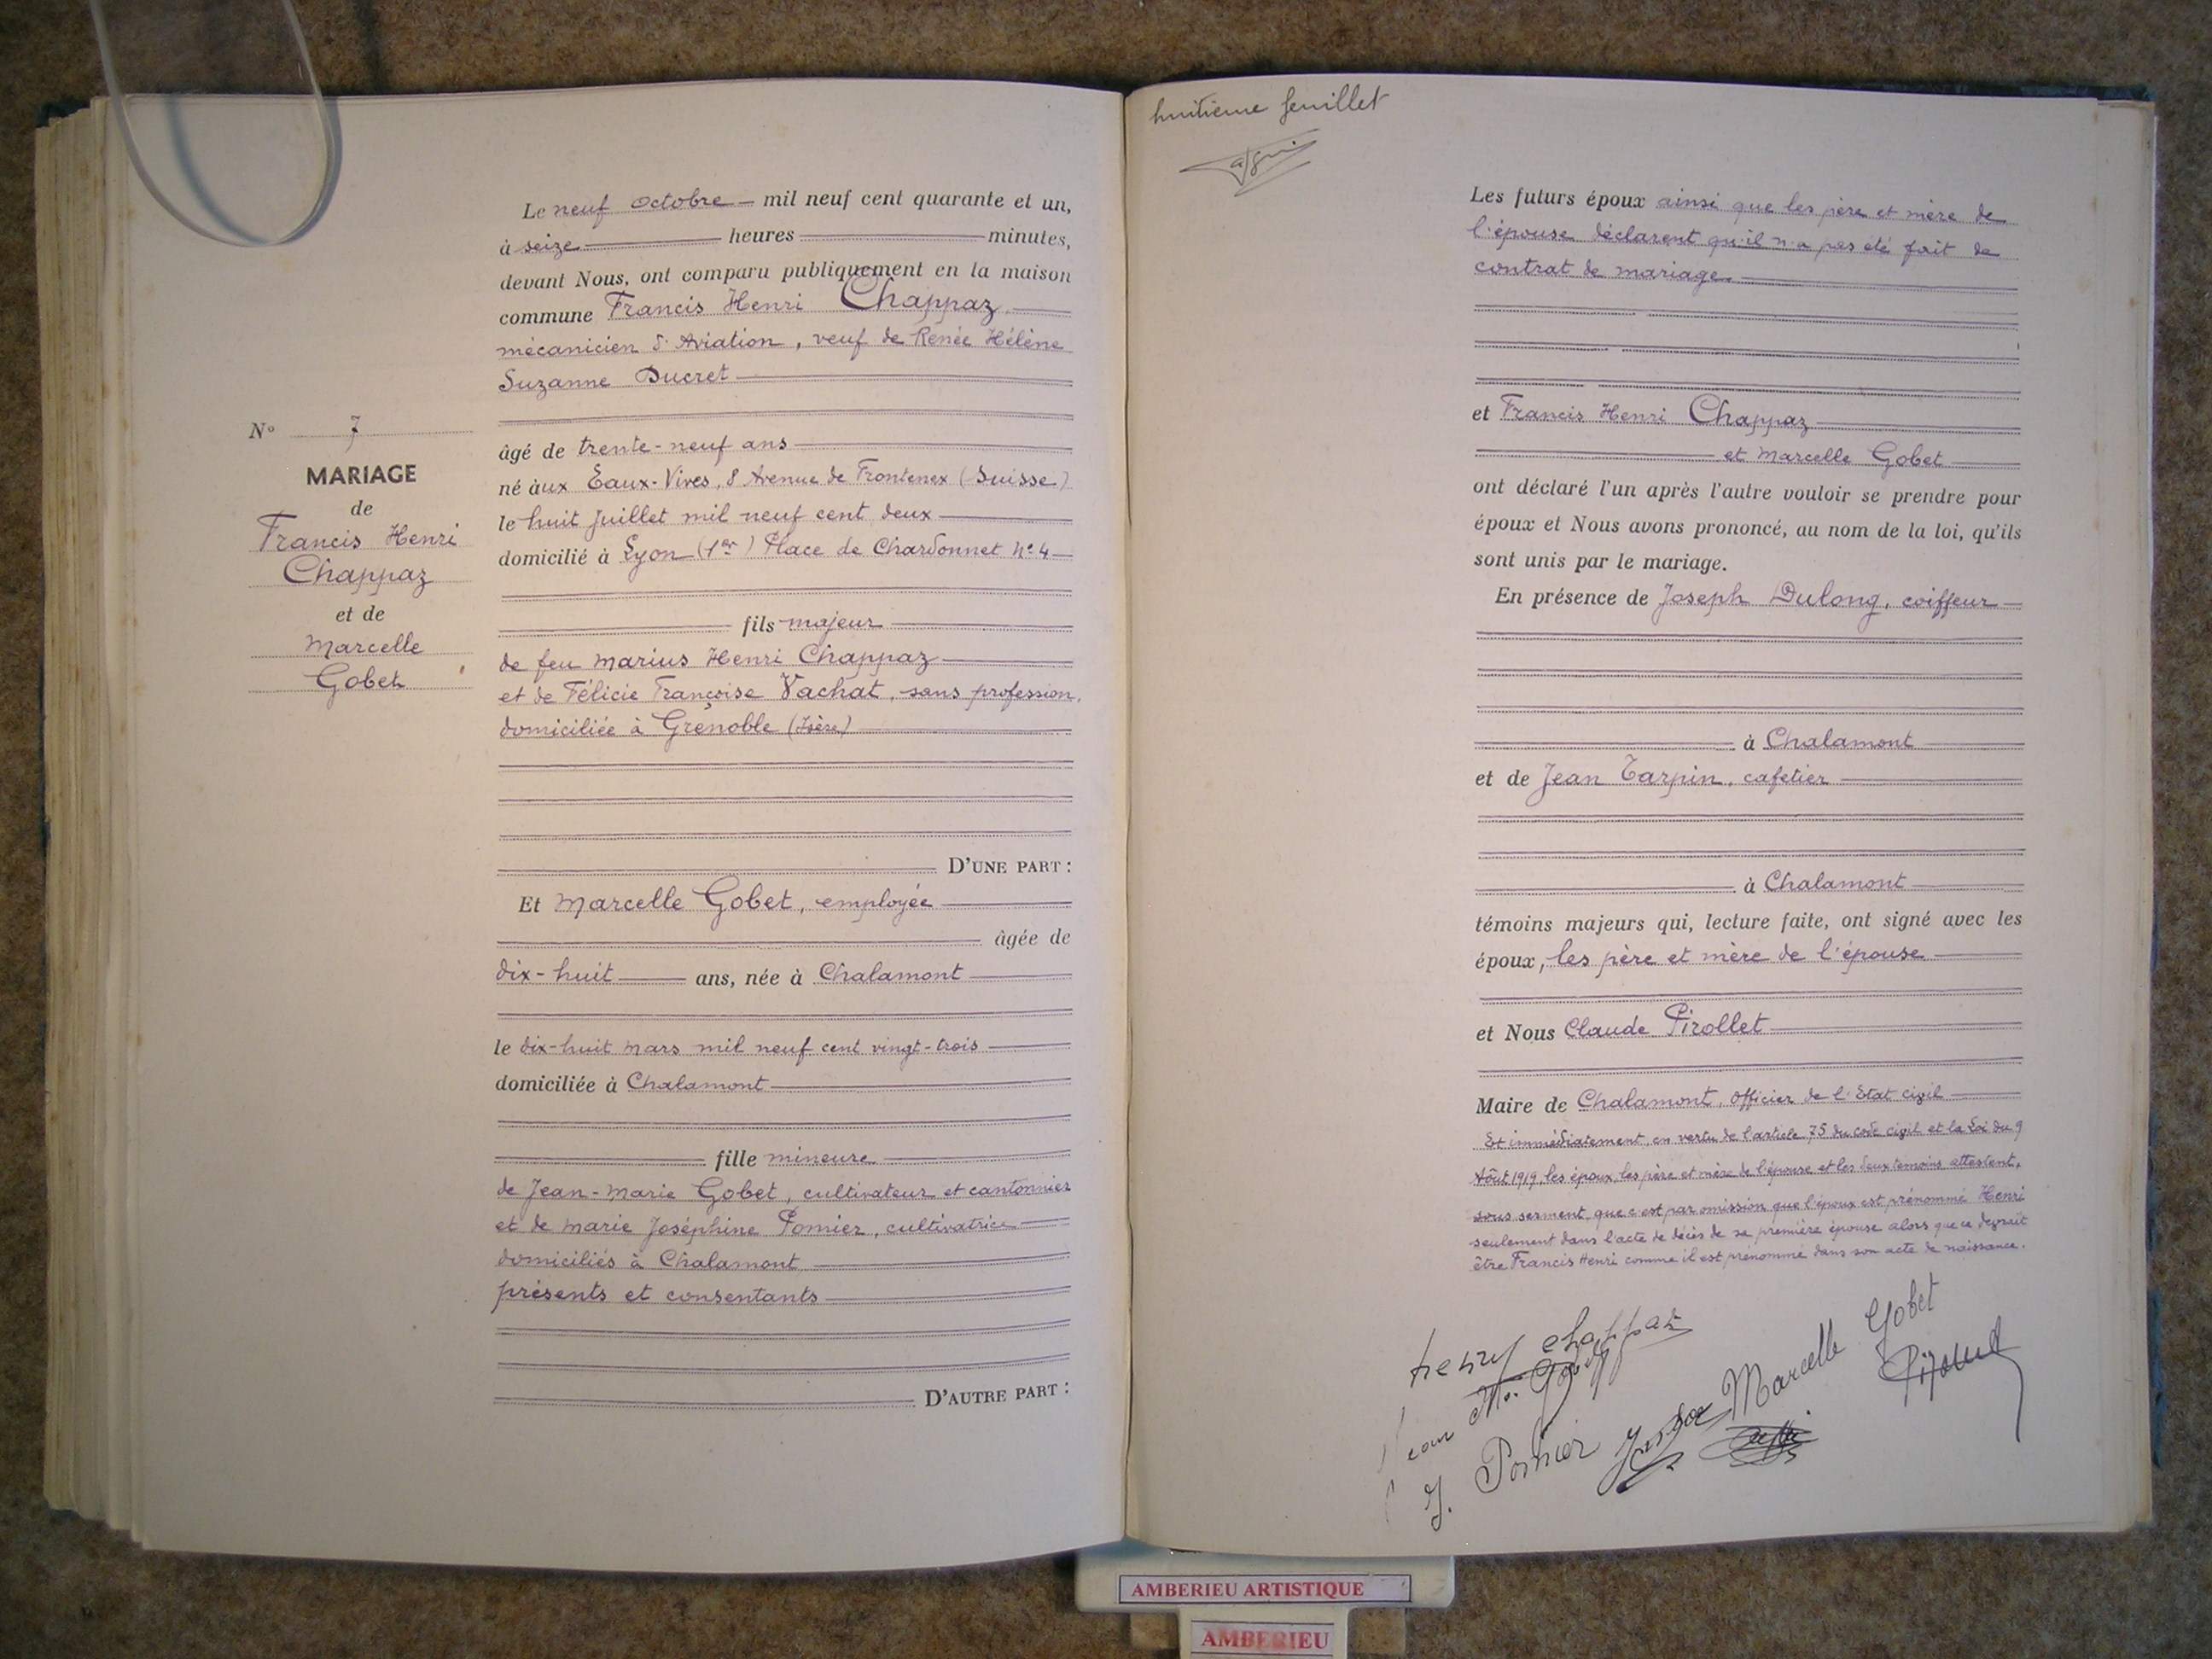 N° 7
MARIAGE
de
Francis Henri
Chappaz
et de
Marcelle
Gobet
Le neuf octobre mil neuf cent quarante et un,
à seize heures minutes,
devant Nous, ont comparu publiquement en la maison
commune Francis Henri Chappaz
mécanicien d'Aviation, veuf de Renée Hélène
Suzanne Ducret
âgé de trente-neuf ans
né aux Eaux-Vives, 8 Avenue de Frontenex (Suisse)
le huit Juillet mil neuf cent deux
domicilié à Lyon (1er) Place de Chardonnet N° 4
fils majeur
de feu Marius Henri Chappaz
et de Félicie Françoise Vachat, sans profession,
domiciliée à Grenoble (Isère)
D'UNE PART :
Et Marcelle Gobet, employée
âgée de
dix-huit ans, née à Chalamont
le dix-huit Mars mil neuf cent vingt-trois
domiciliée à Chalamont
fille mineure
de Jean-Marie Gobet, cultivateur et cantonnier
et de Marie Joséphine Pomier, cultivatrice
domiciliés à Chalamont
présents et consentants
D'AUTRE PART :
huitième feuillet
Les futurs époux ainsi que les père et mère de
l'épouse déclarent qu'il n'a pas été fait de
contrat de mariage.
et Francis Henri Chappaz
et Marcelle Gobet
ont déclaré l'un après l'autre vouloir se prendre pour
époux et Nous avons prononcé, au nom de la loi, qu'ils
sont unis par le mariage.
En présence de Joseph Dulong, coiffeur
à Chalamont
et de Jean Tarpin, cafetier
à Chalamont
témoins majeurs qui, lecture faite, ont signé avec les
époux, les père et mère de l'épouse
et Nous Claude Pirollet
Maire de Chalamont, Officier de l'Etat civil
Et immédiatement, en vertu de l'article 75 du code civil et la Loi du 9
Août 1919, les époux, les père et mère de l'épouse et les deux témoins attestent,
sous serment, que c'est par omission que l'époux est prénommé Henri
seulement dans l'acte de décès de sa première épouse alors que ce devrait
être Francis Henri comme il est prénommé dans son acte de naissance.
henry chappaz
Marcelle Gobet
J. Pomier
AMBERIEU ARTISTIQUE
AMBERIEU